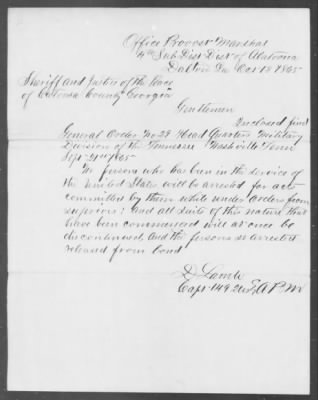 Office Provost Marshal
4th Sub Dist Dist of Alatoona
Dalton Ga Oct 18 1865
Sheriff and Justice of the Peace
of Catoosa County Georgia
Gentlemen
Enclosed find
General Order No 28 Head Quarters Military
Division of the Tennessee Nashville Tenn
Sept 21st 1865
No persons who has been in the service of
the United States will be arrested for acts
committed by them while under orders from
superiors: and all suits of this nature that
have been commenced will at once be
discontinued, and the persons so arrested
released from bond
D Lamb
Capt 149 A P M